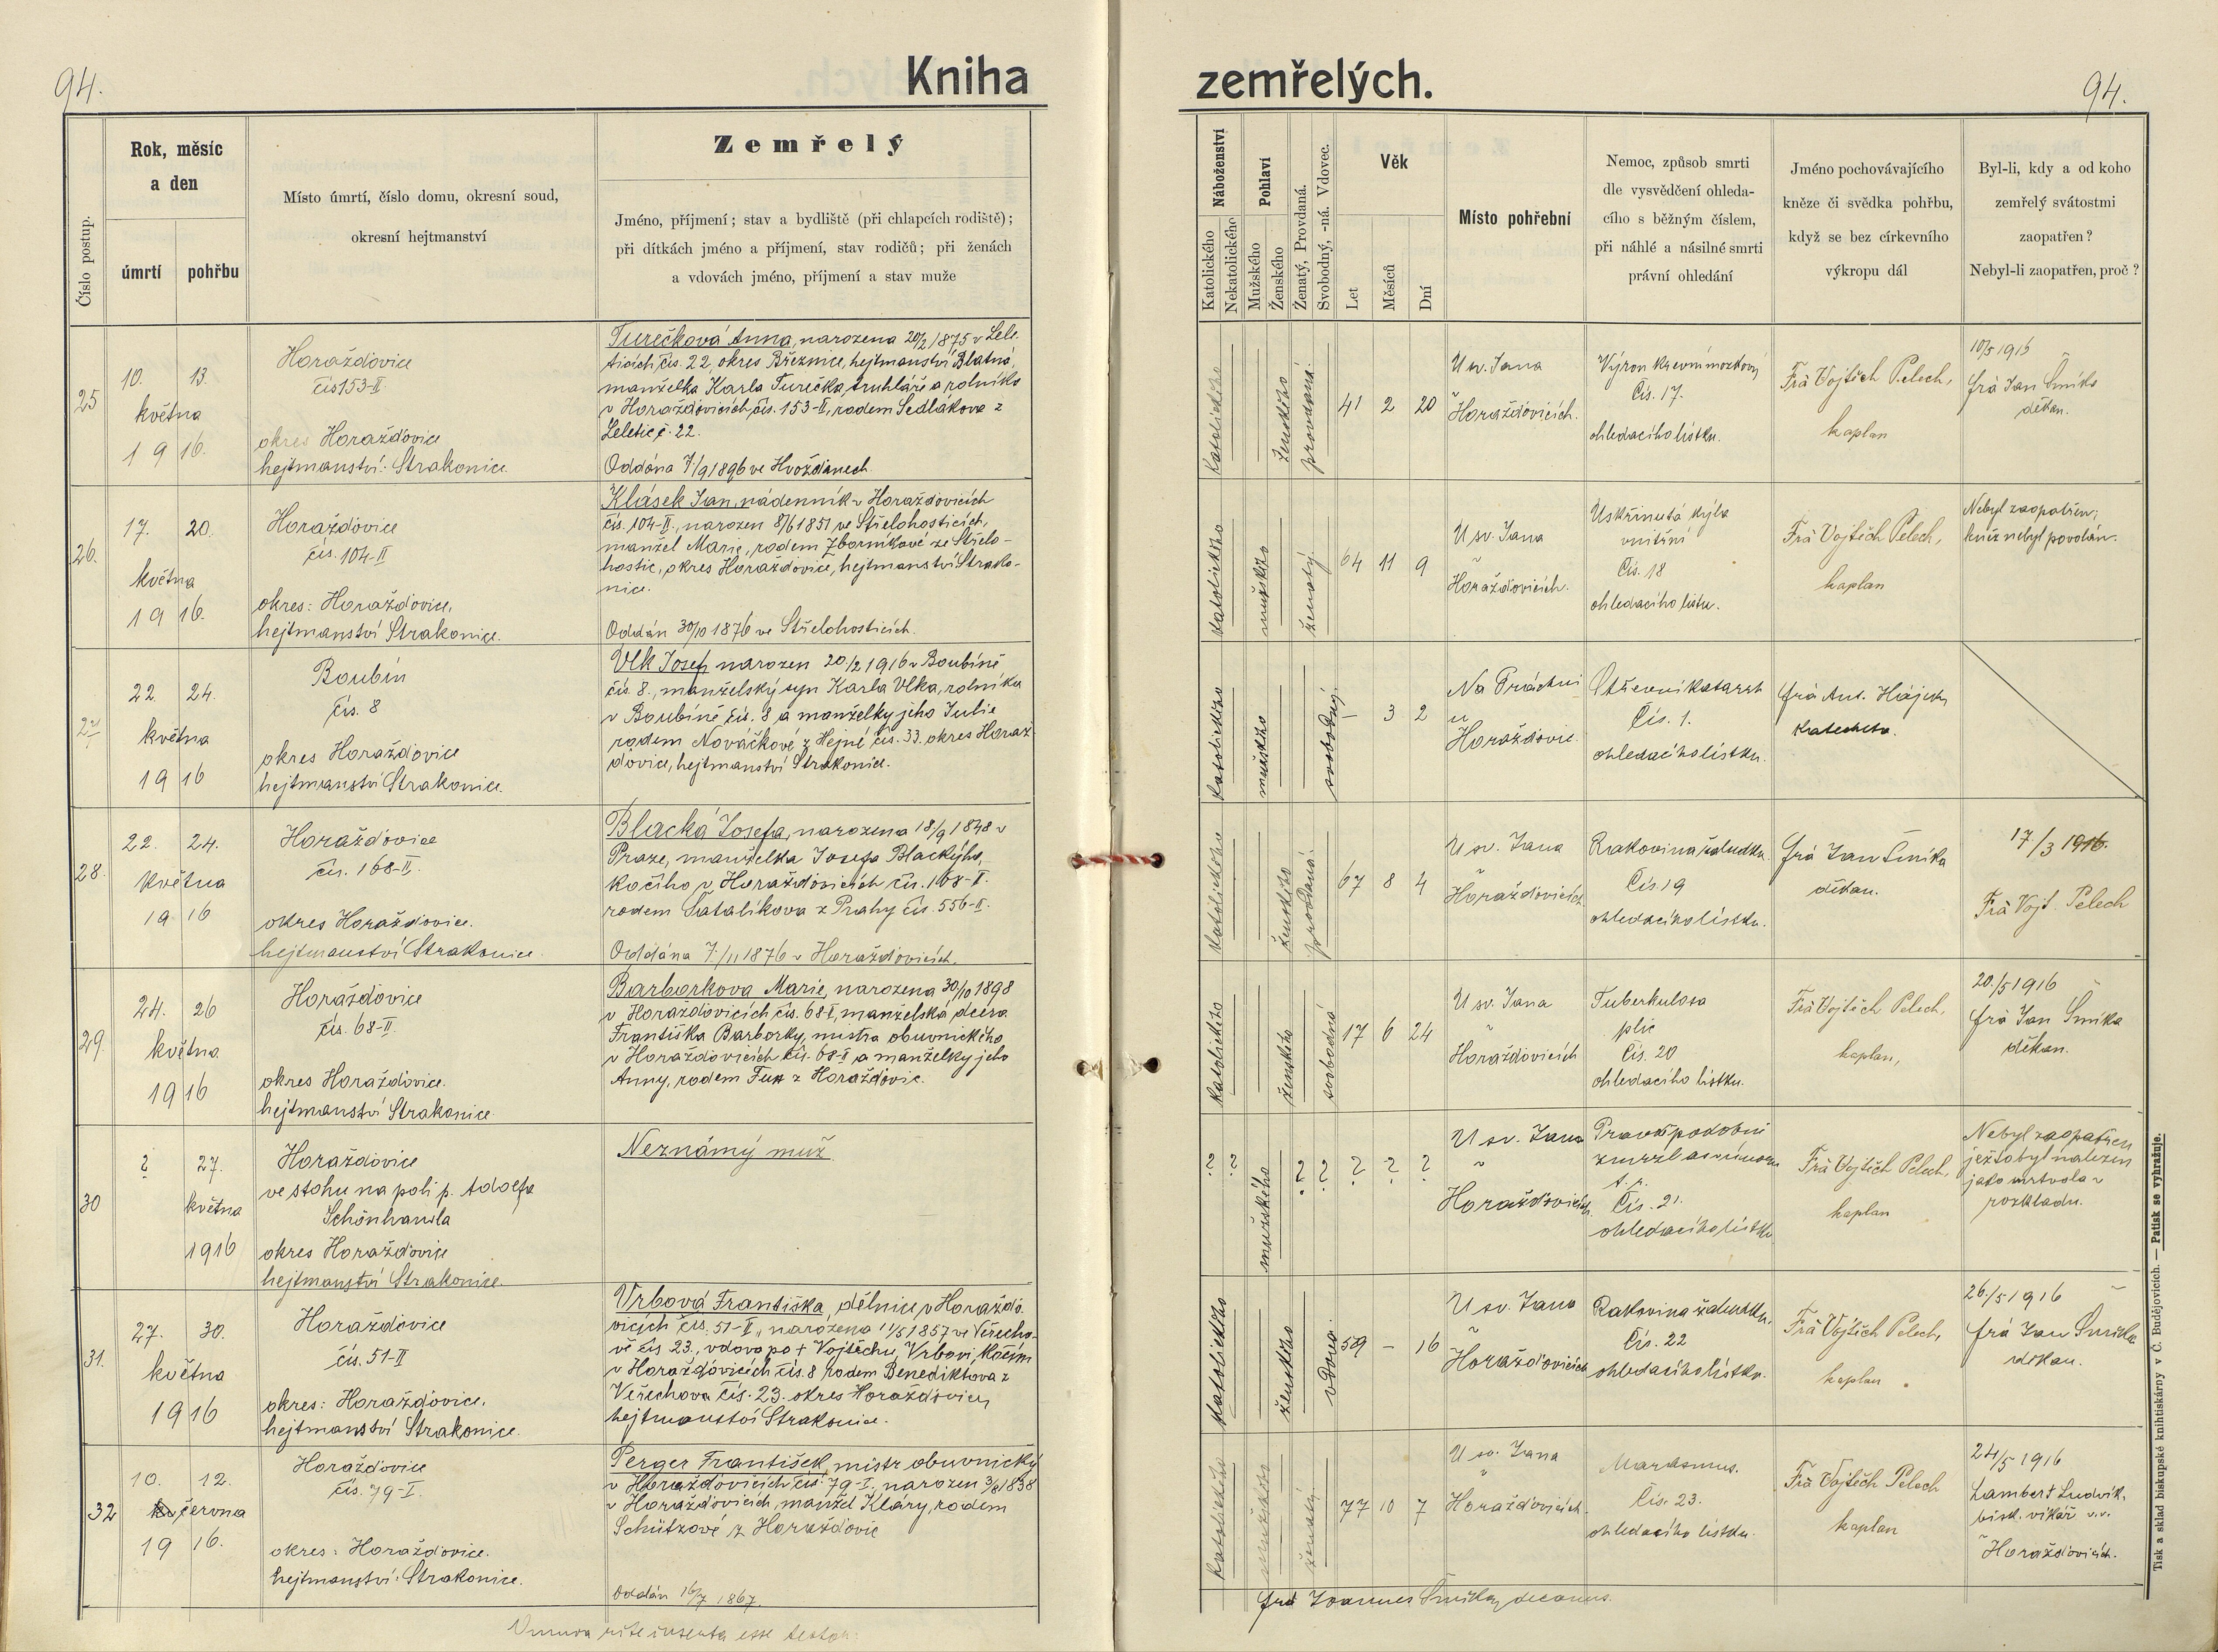 94.
Kniha
Rok, měsíc
a den
Číslo postup.
úmrtí
pohřbu
Místo úmrtí, číslo domu, okresní soud,
okresní hejtmanství
Zemřelý
Jméno, příjmení; stav a bydliště (při chlapcích rodiště);
při dítkách jméno a příjmení, stav rodičů; při ženách
a vdovách jméno, příjmení a stav muže
25
10. 13.
května
1916.
Horažďovice
čís 153-II
okres Horažďovice
hejtmanství: Strakonice.
Turečková Anna, narozena 20/2 1875 v Lele-
ticích čís. 22, okres Březnice, hejtmanství Blatná,
manželka Karla Turečka, truhláře a rolníka
v Horažďovicích čís. 153-II, rodem Sedlákova z
Leletic č. 22.
Oddána 7/9 1896 ve Hvožďanech.
26.
17. 20.
května
1916.
Horažďovice
čís. 104-II
okres: Horažďovice,
hejtmanství Strakonice.
Klásek Jan, nádenník v Horažďovicích
čís. 104-II., narozen 8/6 1851 ve Střelohosticích,
manžel Marie, rodem Zborníkové ze Střelo-
hostic, okres Horažďovice, hejtmanství Strako-
nice.
Oddán 30/10 1876 ve Střelohosticích.
27
22. 24.
května
1916
Boubín
čís. 8
okres Horažďovice
hejtmanství Strakonice.
Vlk Josef, narozen 20/2 1916 v Boubíně
čís. 8., manželský syn Karla Vlka, rolníka
v Boubíně čís. 8 a manželky jeho Julie
rodem Nováčkové z Hejné čís. 33. okres Horaž-
ďovice, hejtmanství Strakonice.
28.
22. 24.
května
1916
Horažďovice
čís. 168-II.
okres Horažďovice.
hejtmanství Strakonice.
Blacká Josefa, narozena 18/9 1848 v
Praze, manželka Josefa Blackýho,
kočího v Horažďovicích čís. 168-II.
rodem Šatalíkova z Prahy čís. 556-II.
Oddána 7./11 1876 v Horažďovicích.
29.
24. 26
května
1916
Horažďovice
čís. 68-II.
okres Horažďovice.
hejtmanství Strakonice.
Barborkova Marie, narozena 30/10 1898
v Horažďovicích čís. 68-I, manželská dcera
Františka Barborky, mistra obuvnického
v Horažďovicích čís. 68-I a manželky jeho
Anny, rodem Fux z Horažďovic.
30
? 27.
května
1916
Horažďovice
ve stohu na poli p. Adolfa
Schönhansla
okres Horažďovice
hejtmanství Strakonice.
Neznámý muž
31.
27. 30.
května
1916
Horažďovice
čís. 51-II
okres: Horažďovice,
hejtmanství Strakonice.
Vrbová Františka, dělnice v Horažďo-
vicích čís. 51-II., narozena 11/5 1857 ve Veřecho-
vě čís 23., vdova po + Vojtěchu Vrbovi, kočím
v Horažďovicích čís. 8 rodem Benediktova z
Veřechova čís. 23. okres Horažďovice,
hejtmanství Strakonice.
32
10. 12.
června
1916.
Horažďovice
čís. 79-I.
okres: Horažďovice.
hejtmanství: Strakonice.
Perger František, mistr obuvnický
v Horažďovicích čís. 79-I., narozen 3/8 1838
v Horažďovicích, manžel Kláry, rodem
Schützové z Horažďovic
Oddán 16/7 1867.
rite inserta esse testor:
zemřelých.
94.
Náboženství
Katolického
Nekatolického
Pohlaví
Mužského
Ženského
Ženatý, Provdaná.
Svobodný, -ná. Vdovec.
Věk
Let
Měsíců
Dní
Místo pohřební
Nemoc, způsob smrti
dle vysvědčení ohleda-
cího s běžným číslem,
při náhlé a násilné smrti
právní ohledání
Jméno pochovávajícího
kněze či svědka pohřbu,
když se bez církevního
výkropu dál
Byl-li, kdy a od koho
zemřelý svátostmi
zaopatřen?
Nebyl-li zaopatřen, proč?
katolického ženského provdaná. 41 2 20
U sv. Jana
v
Horažďovicích.
Výron krevní mozkový
Čís. 17.
ohledacího lístku.
Frà Vojtěch Pelech,
kaplan
10/5 1916
frà Jan Šmíka
děkan.
katolického mužského ženatý. 64 11 9
U sv. Jana
v
Horažďovicích.
Uskřinutá kýla
vnitřní
Čís. 18
ohledacího lístu.
Frà Vojtěch Pelech,
kaplan
Nebyl zaopatřen;
kněz nebyl povolán.
katolického mužského svobodný. – 3 2
Na Práchni
u
Horažďovic.
Střevní katarrh
Čís. 1.
ohledacího lístku.
frà Ant. Hájek
katecheta.
katolického ženského provdaná. 67 8 4
U sv. Jana
v
Horažďovicích
Rakovina žaludku.
Čís. 19
ohledacího lístku.
frà Jan Šmíka
děkan.
17/3 1916.
Frà Vojt. Pelech
katolického ženského svobodná 17 6 24
U sv. Jana
v
Horažďovicích
Tuberkulosa
plic
Čís. 20
ohledacího lístku.
Frà Vojtěch Pelech,
kaplan,
20./5 1916
frà Jan Šmíka
děkan.
? ? mužského ? ? ? ? ?
U sv. Jana
v
Horažďovicích.
Pravděpodobně
zmrzl
Čís. 21.
ohledacího lístku
Frà Vojtěch Pelech,
kaplan
Nebyl zaopatřen
ježto byl nalezen
jako mrtvola v
rozkladu.
katolického ženského vdova. 59 – 16
U sv. Jana
v
Horažďovicích
Rakovina žaludku.
Čís. 22
ohledacího lístku.
Frà Vojtěch Pelech,
kaplan
26./5 1916
frà Jan Šmíka
děkan.
katolického mužského ženatý 77 10 7
U sv. Jana
v
Horažďovicích.
Marasmus.
Čís. 23.
ohledacího lístku.
Frà Vojtěch Pelech
kaplan
24/5 1916
Lambert Ludvík,
bisk. vikář v.v.
v Horažďovicích.
frà Joannes Šmíka, decanus.
Tisk a sklad biskupské knihtiskárny v Č. Budějovicích. — Patisk se vyhražuje.